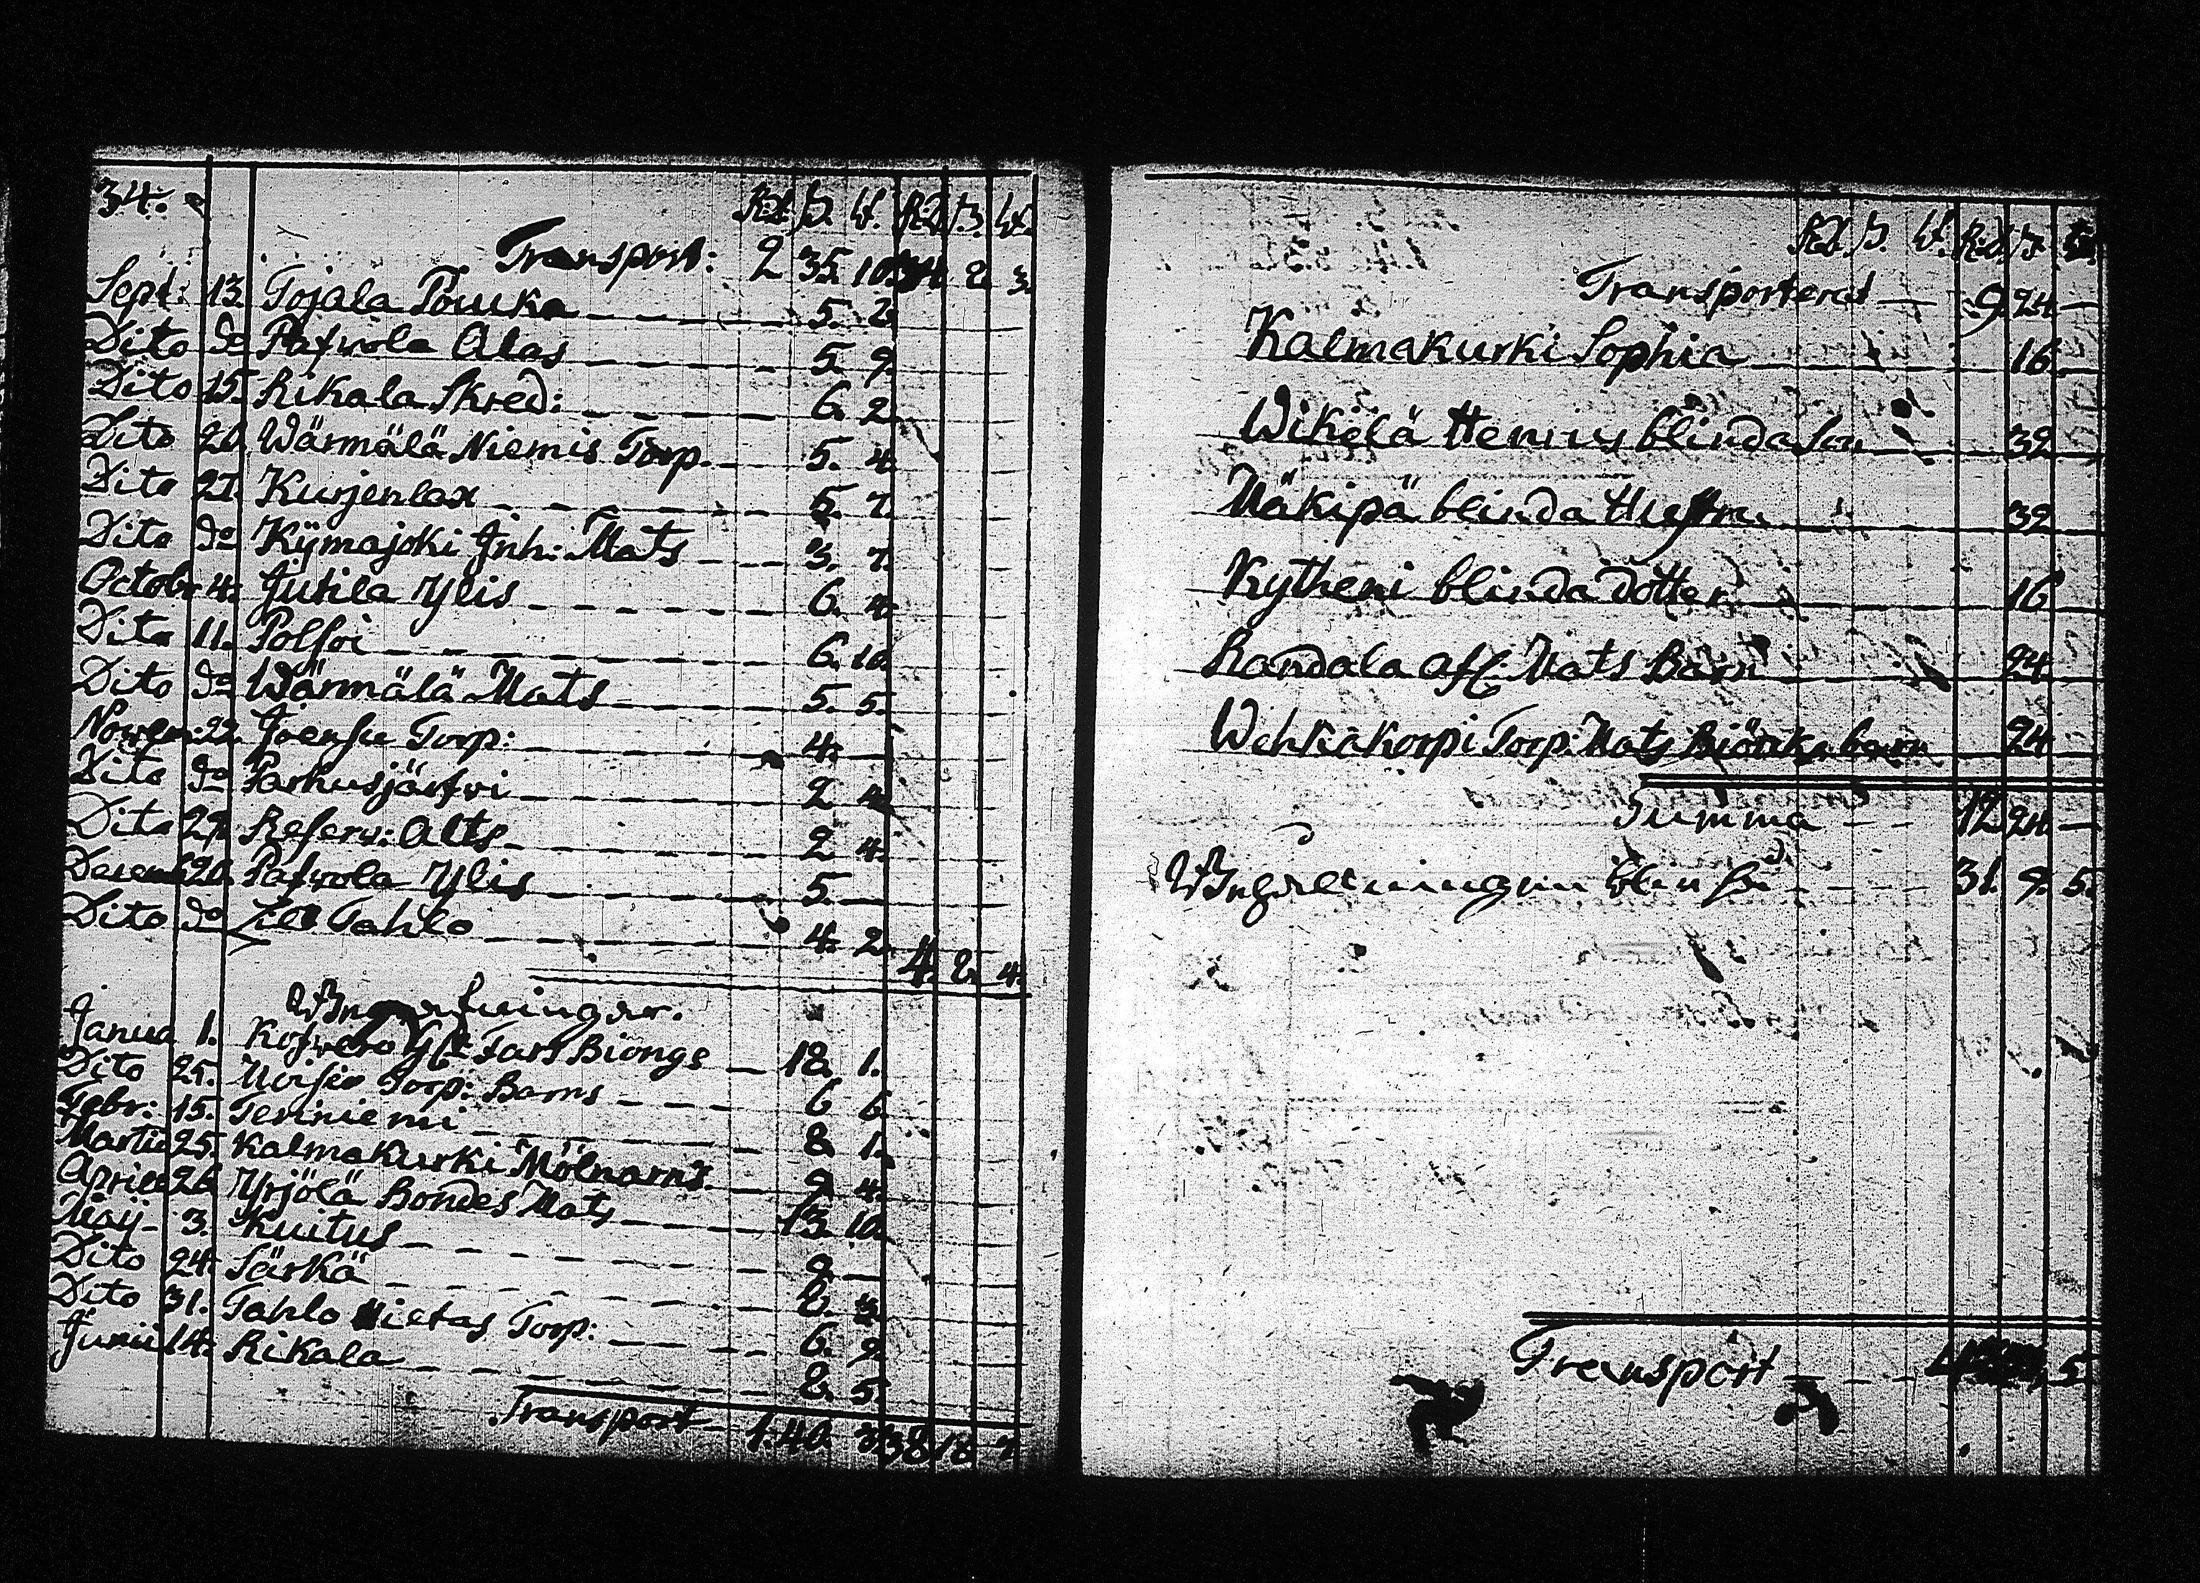 34. Rd. ß. W. Rd. ß. W.
Transport: 2 35. 10. 34. 2. 3.
Sept: 13. Tojala Pouka 5. 2.
Dito do Pafwola Alas 5. 9.
Dito 15. Rikala Skred: 6. 2.
Dito 20. Wärmälä Niemis Torp. 5. 4.
Dito 27. Kurjenlax 5. 7.
Dito do Kÿmajoki Inh: Mats 3. 7.
Octobr 4. Jutila Ylis 6. 4.
Dito 11. Polsoi 6. 10.
Dito do Wärmälä Mats 5. 5.
Novem: 22. Joensu Torp: 4. —
Dito do Parkusjärfvi 2 4.
Dito 29. Reserv: Alts 2 4.
Decemb 20. Pafwola Ylis 5. —
Dito do Zill Tahlo 4. 2. 4. 2. 4.
Janua 1. Kofvero Fars Biongs 18. 1.
Dito 25. Torp: Barns 6 6.
Febr: 15. Teriniemi 8. 1.
Martii 25. Kalmakurki Mölnarns 9. 4.
Aprill 26. Yrjölä Bondes Mats 13. 10.
Maij 3. Kuitus 9. —
Dito 24. Särkä 8.
Dito 31. Tahlo Hietas Torp: 6. 9.
Junii 14. Rikala 8. 5.
Transport 1. 40. 3. 38 18 7
Rd. ß. W. Rd. ß.
Transporterat 9. 24 —
Kalmakurki Sophia 16
Wikelä blinda Son 32
Mäkipä blinda Hustru 32
Kytheni blinda dotter 16
Randala Afl. Mats Barn 24.
Wehkakorpi Torp. Mats Björcks barn 24
Summa 12 24 —
31. 9. 5.
Transport 5